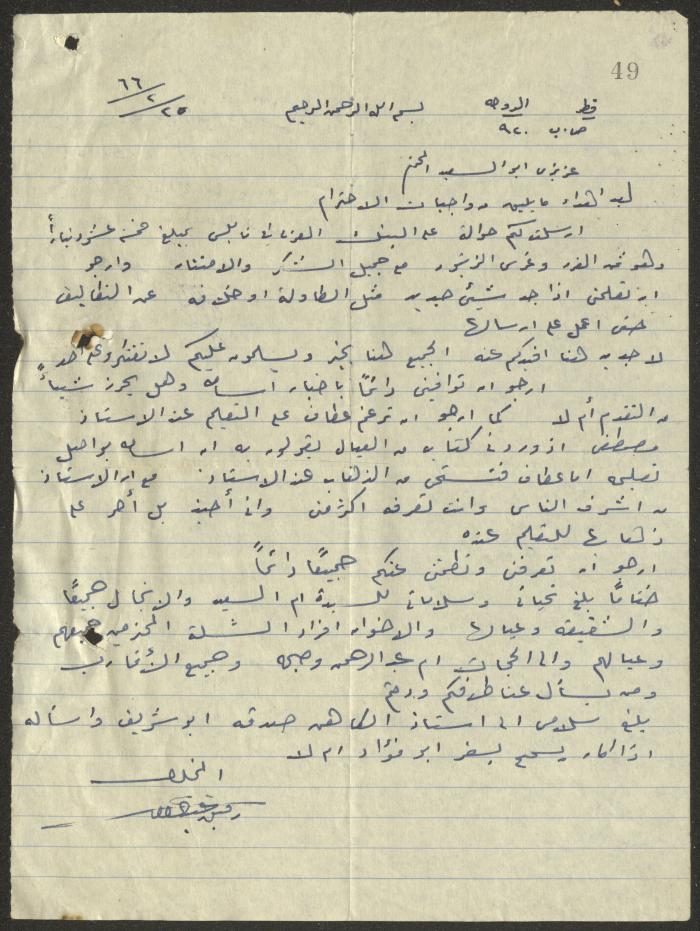 49
قطر الدوحه بسم الله الرحمن الرحيم ٢٥/٢/٦٦
ص.ب ٩٢٠
عزيزي ابو السعيد المحترم
بعد اهداء ما يليق من واجبات الاحترام
ارسلت لكم حوالة على البنك العربي نابلس بمبلغ خمسة عشر دينارأ
وهو ثمن الفرز وغرس الزيتون مع جميل الشكر والامتنان وارجو
ان تعلمني اذا جد شيئ جديد مثل الطاولة او خلافه عن التكاليف
حتى اعمل على ارسالها
لا جديد هنا افيدكم عنه الجميع هنا بخير ويسلمون عليكم لا تفتكروا على احد
ارجو ان توافيني دائمًا باخبار اسامه وهل يحرز شيئاً
من التقدم أم لا كما ارجو ان ترغم عطاف على التعليم عند الاستاذ
مصطفى اذ وردني كتاب من العيال يقولون به ان اسامه يواصل
تعليمه اما عطاف فتستحي من الذهاب عند الاستاذ مع ان الاستاذ
من اشرف الناس وانت تعرفه اكثر مني واني أحبذ بل أصر على
ذهابها للتعليم عنده
ارجو ان تعرفني وتطمني عنكم جميعًا دائمًا
ختامًا بلغ تحياتي وسلاماتي للسيدة ام السعيد والانجال جميعًا
والشقيقه وعيالها والاخوان افراد الشلة المحترمين جميعهم
وعيالهم والى الحجات ام عبد الرحمن وصبحه وجميع الأقارب
ومن يسأل عنا طرفكم ودمتم
بلغ سلامي الى استاذ الكاهن صدقه ابو شريف واسأله
اذا كان يسمح بسفر ابو فؤاد ام لا
المخلص